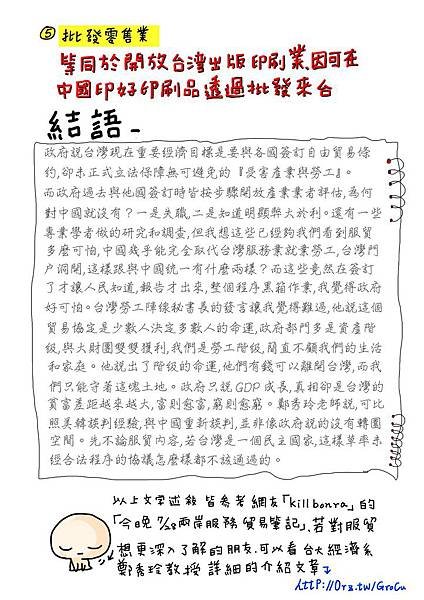 ⑤ 批發零售業
等同於開放台灣出版印刷業,因可在
中國印好印刷品透過批發來台
結語-
政府說台灣現在重要經濟目標是要與各國簽訂自由貿易條
約,卻未正式立法保障無可避免的『受害產業與勞工』。
而政府過去與他國簽訂時皆按步驟開放產業業者評估,為何
對中國就沒有?一是失職,二是知道明顯弊大於利。還有一些
專業學者做的研究和調查,但我想這些已經夠我們看到服貿
多麼可怕,中國幾乎能完全取代台灣服務業就業勞工,台灣門
戶洞開,這樣跟與中國統一有什麼兩樣?而這些竟然在簽訂
了才讓人民知道,報告才出來,整個程序黑箱作業,我覺得政府
好可怕。台灣勞工陣線秘書長的發言讓我覺得難過,他說這個
貿易協定是少數人決定多數人的命運,政府部門多是資產階
級,與大財團雙雙獲利,我們是勞工階級,簡直不顧我們的生活
和家庭。他說出了階級的命運,他們有錢可以離開台灣,而我
們只能守著這塊土地。政府只說GDP成長,真相卻是台灣的
貧富差距越來越大,富則愈富,窮則愈窮。鄭秀玲老師說,可比
照美韓談判經驗,與中國重新談判,並非像政府說的沒有轉圜
空間。先不論服貿內容,若台灣是一個民主國家,這樣草率未
經合法程序的協議怎麼樣都不該通過的。
以上文字述敘皆參考網友「killbonra」的
「今晚7/28兩岸服務貿易筆記」,若對服貿
想更深入了解的朋友,可以看台大經濟系
鄭秀玲教授詳細的介紹文章
HTTP://0rz.tw/GroCu